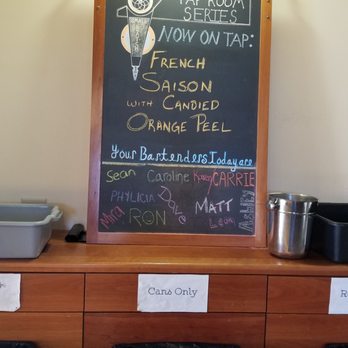 TAP ROOM
SERIES
NOW ON TAP:
FRENCH
SAISON
WITH CANDIED
ORANGE PEEL
Your Bartenders Today are
Sean Caroline Karen CARRIE
PHYLICIA Dave MATT ASHLEY
MIKI RON Leila
Cans Only
R